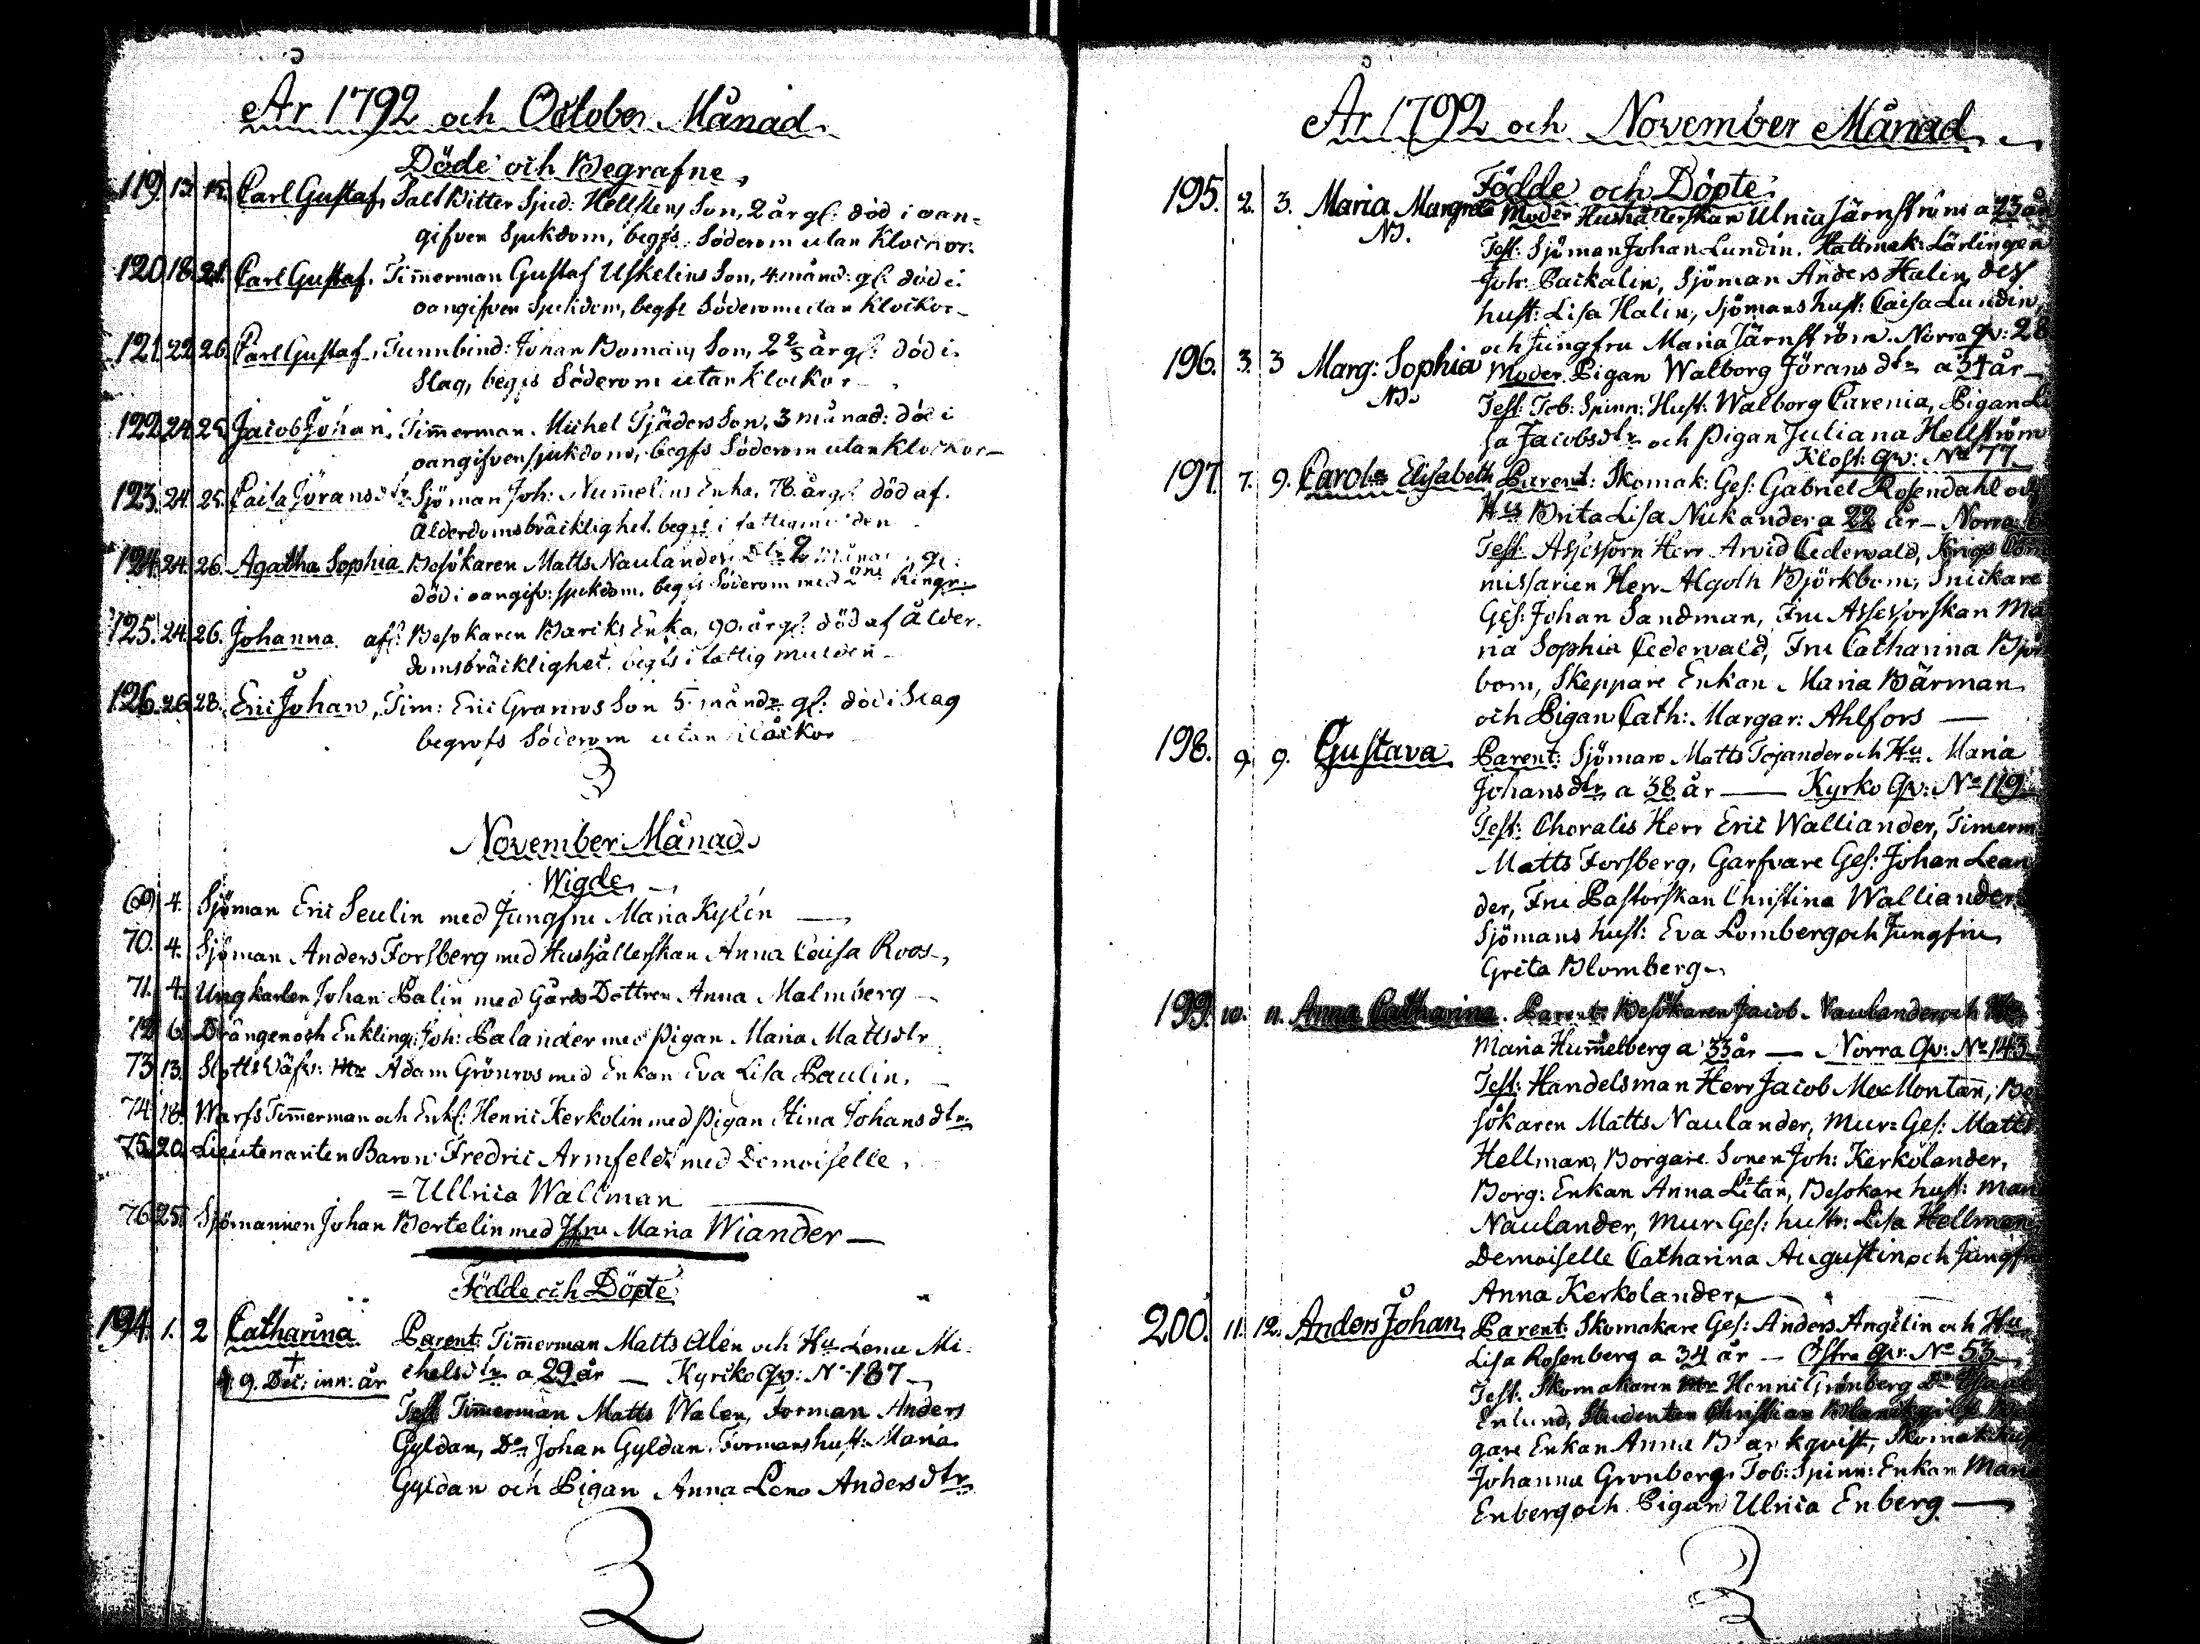 År 1792 och October Månad
Döde och Begrafne
119. 13. 15. Carl Gustaf, Salt Ritter Sjud: Hellstens Son, 2 år gl: död i oan-
gifven Sjukdom, begfs Söderom utan Klockor.
120 18. 21. Carl Gustaf. Tim̄erman Gustaf Uskelins Son, 4 månd: gl: död i
oangifven Sjukdom, begfs Söderom utan Klockor-
121. 22. 26. Carl Gustaf, Tunnbind: Johan Bomans Son, 2 år gl: död i
Slag, begfs Söderom utan Klockor
122. 24. 25. Jacob Johan. Tim̄erman Michel Tjäders Son, 3 månad: död i
oangifven sjukdom, begfs Söderom utan Klockor-
123. 24. 25. Caisa Jöransdtr Sjöman Joh: Num̄elins Enka, 78. år gl: död af
Ålderdomsbräcklighet. begfs i fattigmulden
124. 24. 26. Agatha Sophia Besökaren Matts Naulanders Dtr
död i oangifv: sjukdom. begfs Söderom med Ringn:
125. 24. 26. Johanna afl: Besökaren Barcks Enka, 90. år gl: död af Ålder-
domsbräcklighet. begfs i fattig mulden-
126. 26. 28. Eric Johan, Tim: Eric Granros Son 5 måndr gl: död i Slag
begrofs Söderom utan Klockor
November Månad
Wigde
69 4. Sjöman Eric Seulin med Jungfru Maria Kylén
70. 4. Sjöman Anders Forsberg med Hushållerskan Anna Caisa Roos
71. 4. Ungkarlen Johan Palin med Gårds Dottren Anna Malmberg
72 6. Drängen och Enkling: Joh: Palander med Pigan Maria Mattsdtr
73 13. Slotts Adam Grönros med Enkan Eva Lisa Paulin,
74 18. Warfs Tim̄erman och Enkl: Henric Kerkolin med Pigan Stina Johansdtr
75. 20. Lieutenanten Baron Fredric Armfeldt med Demoiselle
= Ullrica Wallman
76 25. Sjömannen Johan Bertelin med Jfru Maria Wiander
Födde och Döpte
194. 1. 2 Catharina Parent: Tim̄erman Matts Alén och Hu Lena Mi-
† 9. Dec: inn: år chelsdtr a 29 år — Kyrko Qv: No 187
Test Tim̄erman Matts Walen, Forman Anders
Gyldan, Do Johan Gyldan, Formans hust: Maria
Gyldan och Pigan Anna Lena Andersdtr
År 1792 och November Månad
Födde och Döpte
195. 2. 3. Maria Margreta Moder Hushållerskan Ulrica Järnström a 23 år
Test: Sjöman Johan Lundin, Hattmak: Lärlingen
Joh: Packalin, Sjöman Anders Halin, dess
hust: Lisa Halin, Sjömans hust: Caisa Lundin,
och Jungfru Maria Järnström. Norra Qv: 28
196. 3. 3 Marg: Sophia Moder Pigan Walborg Jöransdtr a 34 år
Test: Tob: Spinn: Hust: Walborg Carenia, Pigan Li
sa Jacobsdtr och Pigan Juliana Hellström
Klost: Qv: No 77
197. 7. 9. Carol: Elisabeth Parent: Skomak: Ges: Gabriel Rosendahl och
Hu Brita Lisa Nukander a 22 år — Norra
Test: Assessorn Herr Arvid Cedervald, Krigs Com̄
missarien Herr Algoth Björkbom, Snickare
Ges: Johan Sandman, Fru Assessorskan Ma
na Sophia Cedervald, Fru Catharina Björ
bom, Skeppare Enkan Maria Bärman
och Pigan Cath: Margar: Ahlfors
198. 9. 9. Gustava Parent: Sjöman Matts Tojander och Hu Maria
Johansdtr a 38 år — Kyrko Qv: No 119
Test: Choralis Herr Eric Walliander, Timerm
Matts Forsberg, Garfvare Ges: Johan Lean
der, Fru Pastorskan Christina Walliander
Sjömans hust: Eva Lomberg och Jungfru
Greta Blomberg
199. 10. 11. Anna Catharina. Parent: Besökaren Jacob Naulander och Hu
Maria Hum̄elberg a 33 år — Norra Qv: No 143
Test: Handelsman Herr Jacob Mec Montan, Be
sökaren Matts Naulander, Mur: Ges: Matts
Hellman, Borgare Sonen Joh: Kerkolander,
Borg: Enkan Anna Litan, Besökare hust: Mari
Naulander, Mur: Ges: hustr: Lisa Hellman
Demoiselle Catharina Augustin och Jungfru
Anna Kerkolander
200. 11. 12. Anders Johan. Parent: Skomakare Ges: Anders Angelin och Hu
Lisa Rosenberg a 34 år — Östra Qv: No 53
Test: Skomakaren Henric Grönberg Do
Enlund, Studenten Christian
gare Enkan Anna Barkqvist, Skomak:
Johanna Gronberg, Tob: Spinn: Enkan Maria
Enberg och Pigan Ulrica Enberg